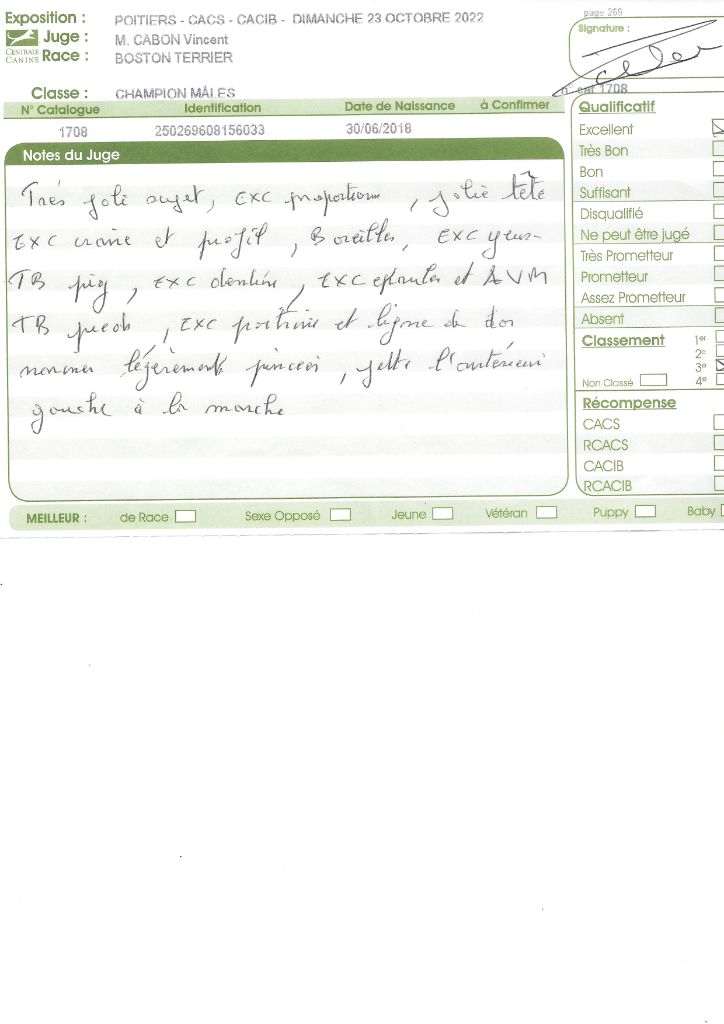 Exposition : POITIERS - CACS - CACIB - DIMANCHE 23 OCTOBRE 2022
CENTRALE CANINE
Juge : M. CABON Vincent
Race : BOSTON TERRIER
Classe : CHAMPION MÂLES
page 268
Signature :
n° cat 1708
N° Catalogue Identification Date de Naissance à Confirmer
1708 250269608156033 30/06/2018
Notes du Juge
Très joli sujet, EXC proportions, jolie tête
EXC crane et profil, B oreilles, EXC yeux
TB pig, EXC dentine, EXC epaules et AVM
TB pieds, EXC poitrine et ligne de dos
légèrement pinces, jette l'antérieur
gauche à la marche
Qualificatif
Excellent
Très Bon
Bon
Suffisant
Disqualifié
Ne peut être jugé
Très Prometteur
Prometteur
Assez Prometteur
Absent
Classement 1er
2e
3e
Non Classé 4e
Récompense
CACS
RCACS
CACIB
RCACIB
MEILLEUR : de Race Sexe Opposé Jeune Vétéran Puppy Baby